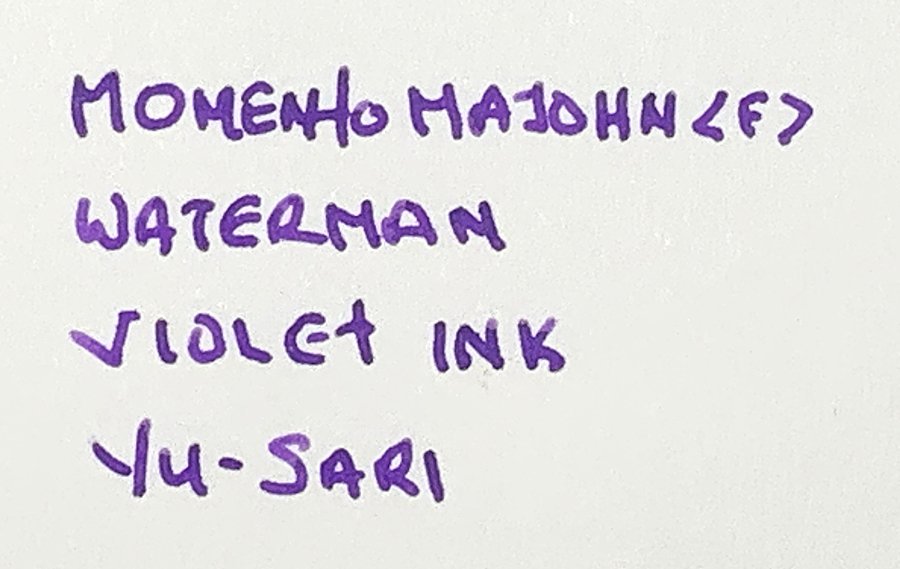 MOMENtO MAJOHN <F>
WATERMAN
VIOLEt INK
YU-SARI